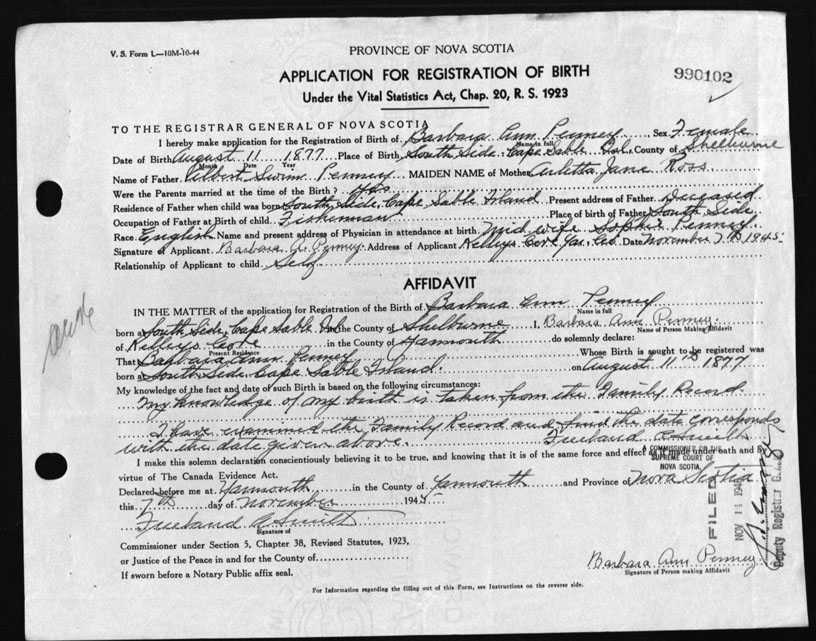 V. S. Form L—10M-10-44
PROVINCE OF NOVA SCOTIA
APPLICATION FOR REGISTRATION OF BIRTH
990102
Under the Vital Statistics Act, Chap. 20, R. S. 1923
TO THE REGISTRAR GENERAL OF NOVA SCOTIA
I hereby make application for the Registration of Birth of Barbara Ann Penney Sex Female
Name in full
Date of Birth August 11 1877 Place of Birth South Side Cape Sable Isl. County of Shelburne
Month Date Year
Name of Father Swim Penney MAIDEN NAME of Mother Arletta Jane Ross
Were the Parents married at the time of the Birth? Yes
Residence of Father when child was born South Side, Cape Sable Island Present address of Father Deceased
Occupation of Father at Birth of child Fisherman Place of birth of Father South Side
Race English Name and present address of Physician in attendance at birth Mid wife Sophie Penney
Signature of Applicant Barbara A. Penney Address of Applicant Kelleys Cove Yar. Co Date November 7th 1945
Relationship of Applicant to child Self
AFFIDAVIT
IN THE MATTER of the application for Registration of the Birth of Barbara Ann Penney
Name in full
born at South Side, Cape Sable Isl in the County of Shelburne I, Barbara Ann Penney
Name of Person Making Affidavit
of Kelleys Cove in the County of Yarmouth do solemnly declare:
Present Residence
That Barbara Ann Penney Whose Birth is sought to be registered was
born at South Side Cape Sable Island. on August 11th 1877
My knowledge of the fact and date of such Birth is based on the following circumstances:
My knowledge of my birth is taken from the Family Record
I have examined the Family Record and find the date corresponds
with the date given above. Freeland
COMMISSIONER OF THE
SUPREME COURT OF
NOVA SCOTIA
I make this solemn declaration conscientiously believing it to be true, and knowing that it is of the same force and effect as if made under oath and by
virtue of The Canada Evidence Act.
Declared before me at Yarmouth in the County of Yarmouth and Province of Nova Scotia
this 7th day of November 1945
Freeland Smith
Signature of
Commissioner under Section 5, Chapter 38, Revised Statutes, 1923,
or Justice of the Peace in and for the County of
If sworn before a Notary Public affix seal.
FILED
NOV 14
Deputy Registrar
Barbara Ann Penney
Signature of Person making Affidavit
For Information regarding the filling out of this Form, see Instructions on the reverse side.